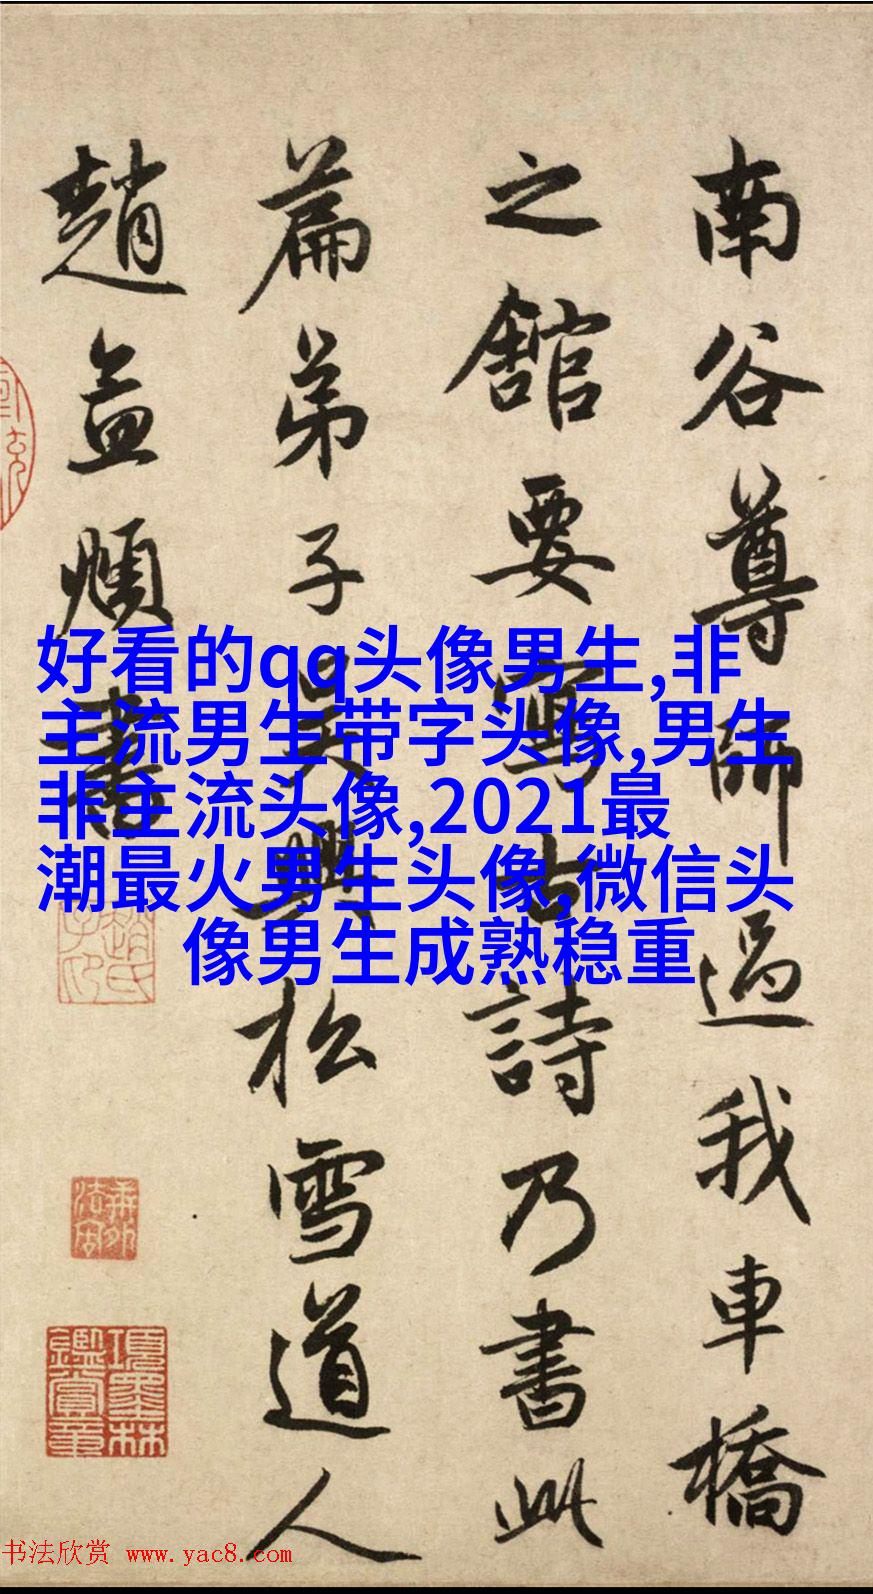 南谷尊師過我車橋
之舘要寫古詩乃書此
篇弟子吳興松雪道人
趙孟頫書
好看的qq头像男生,非
主流男生带字头像,男生
非主流头像,2021最
潮最火男生头像,微信头
像男生成熟稳重
項墨林鑑賞章
书法欣赏 www.yac8.com